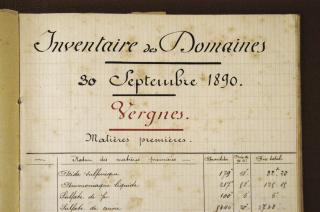 Inventaire des Domaines
30 Septembre 1890.
Vergnes.
Matières premières.
Nature des matières premières Quantités Prix total
Acide sulfurique 179
Ammoniaque liquide 217
Sulfate de fer 100
Sulfate de cuivre